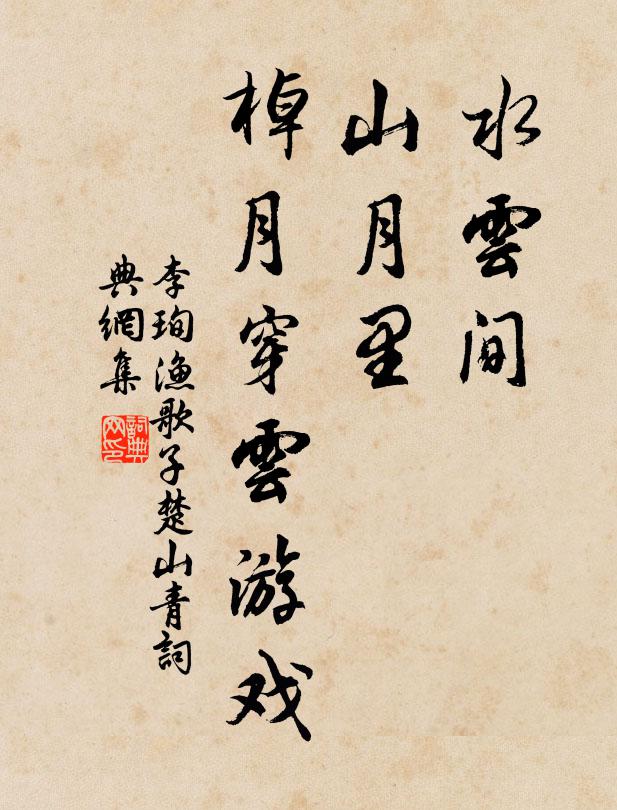 水雲間
山月里
棹月穿雲游戏
李珣漁歌子楚山青詞
典網集
詞典
网印